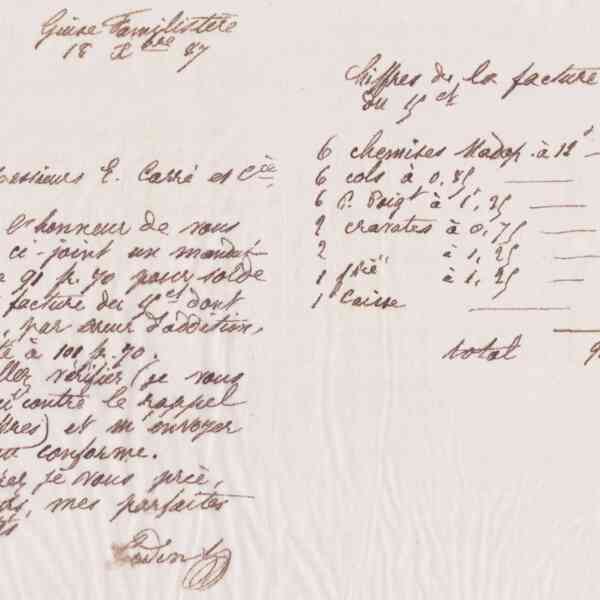 Guise Familistère
18 Xbre 87
Messieurs E. Carré et Cie,
l'honneur de vous
ci-joint un mandat
91 fr. 70 pour solde
facture du 15 ct dont
, par erreur d'addition,
té à 101 fr. 70.
llez vérifier (je vous
ci contre le rappel
ffres) et m'envoyer
conforme.
je vous prie,
, mes parfaites
Godin
Chiffres de la facture
du 15 ct
6 chemises Madap. à 12f
6 cols à 0,85
6 P. Poigts à 1,25
2 cravates à 0,75
2 à 1,25
1 à 1,25
1 Caisse
total 9